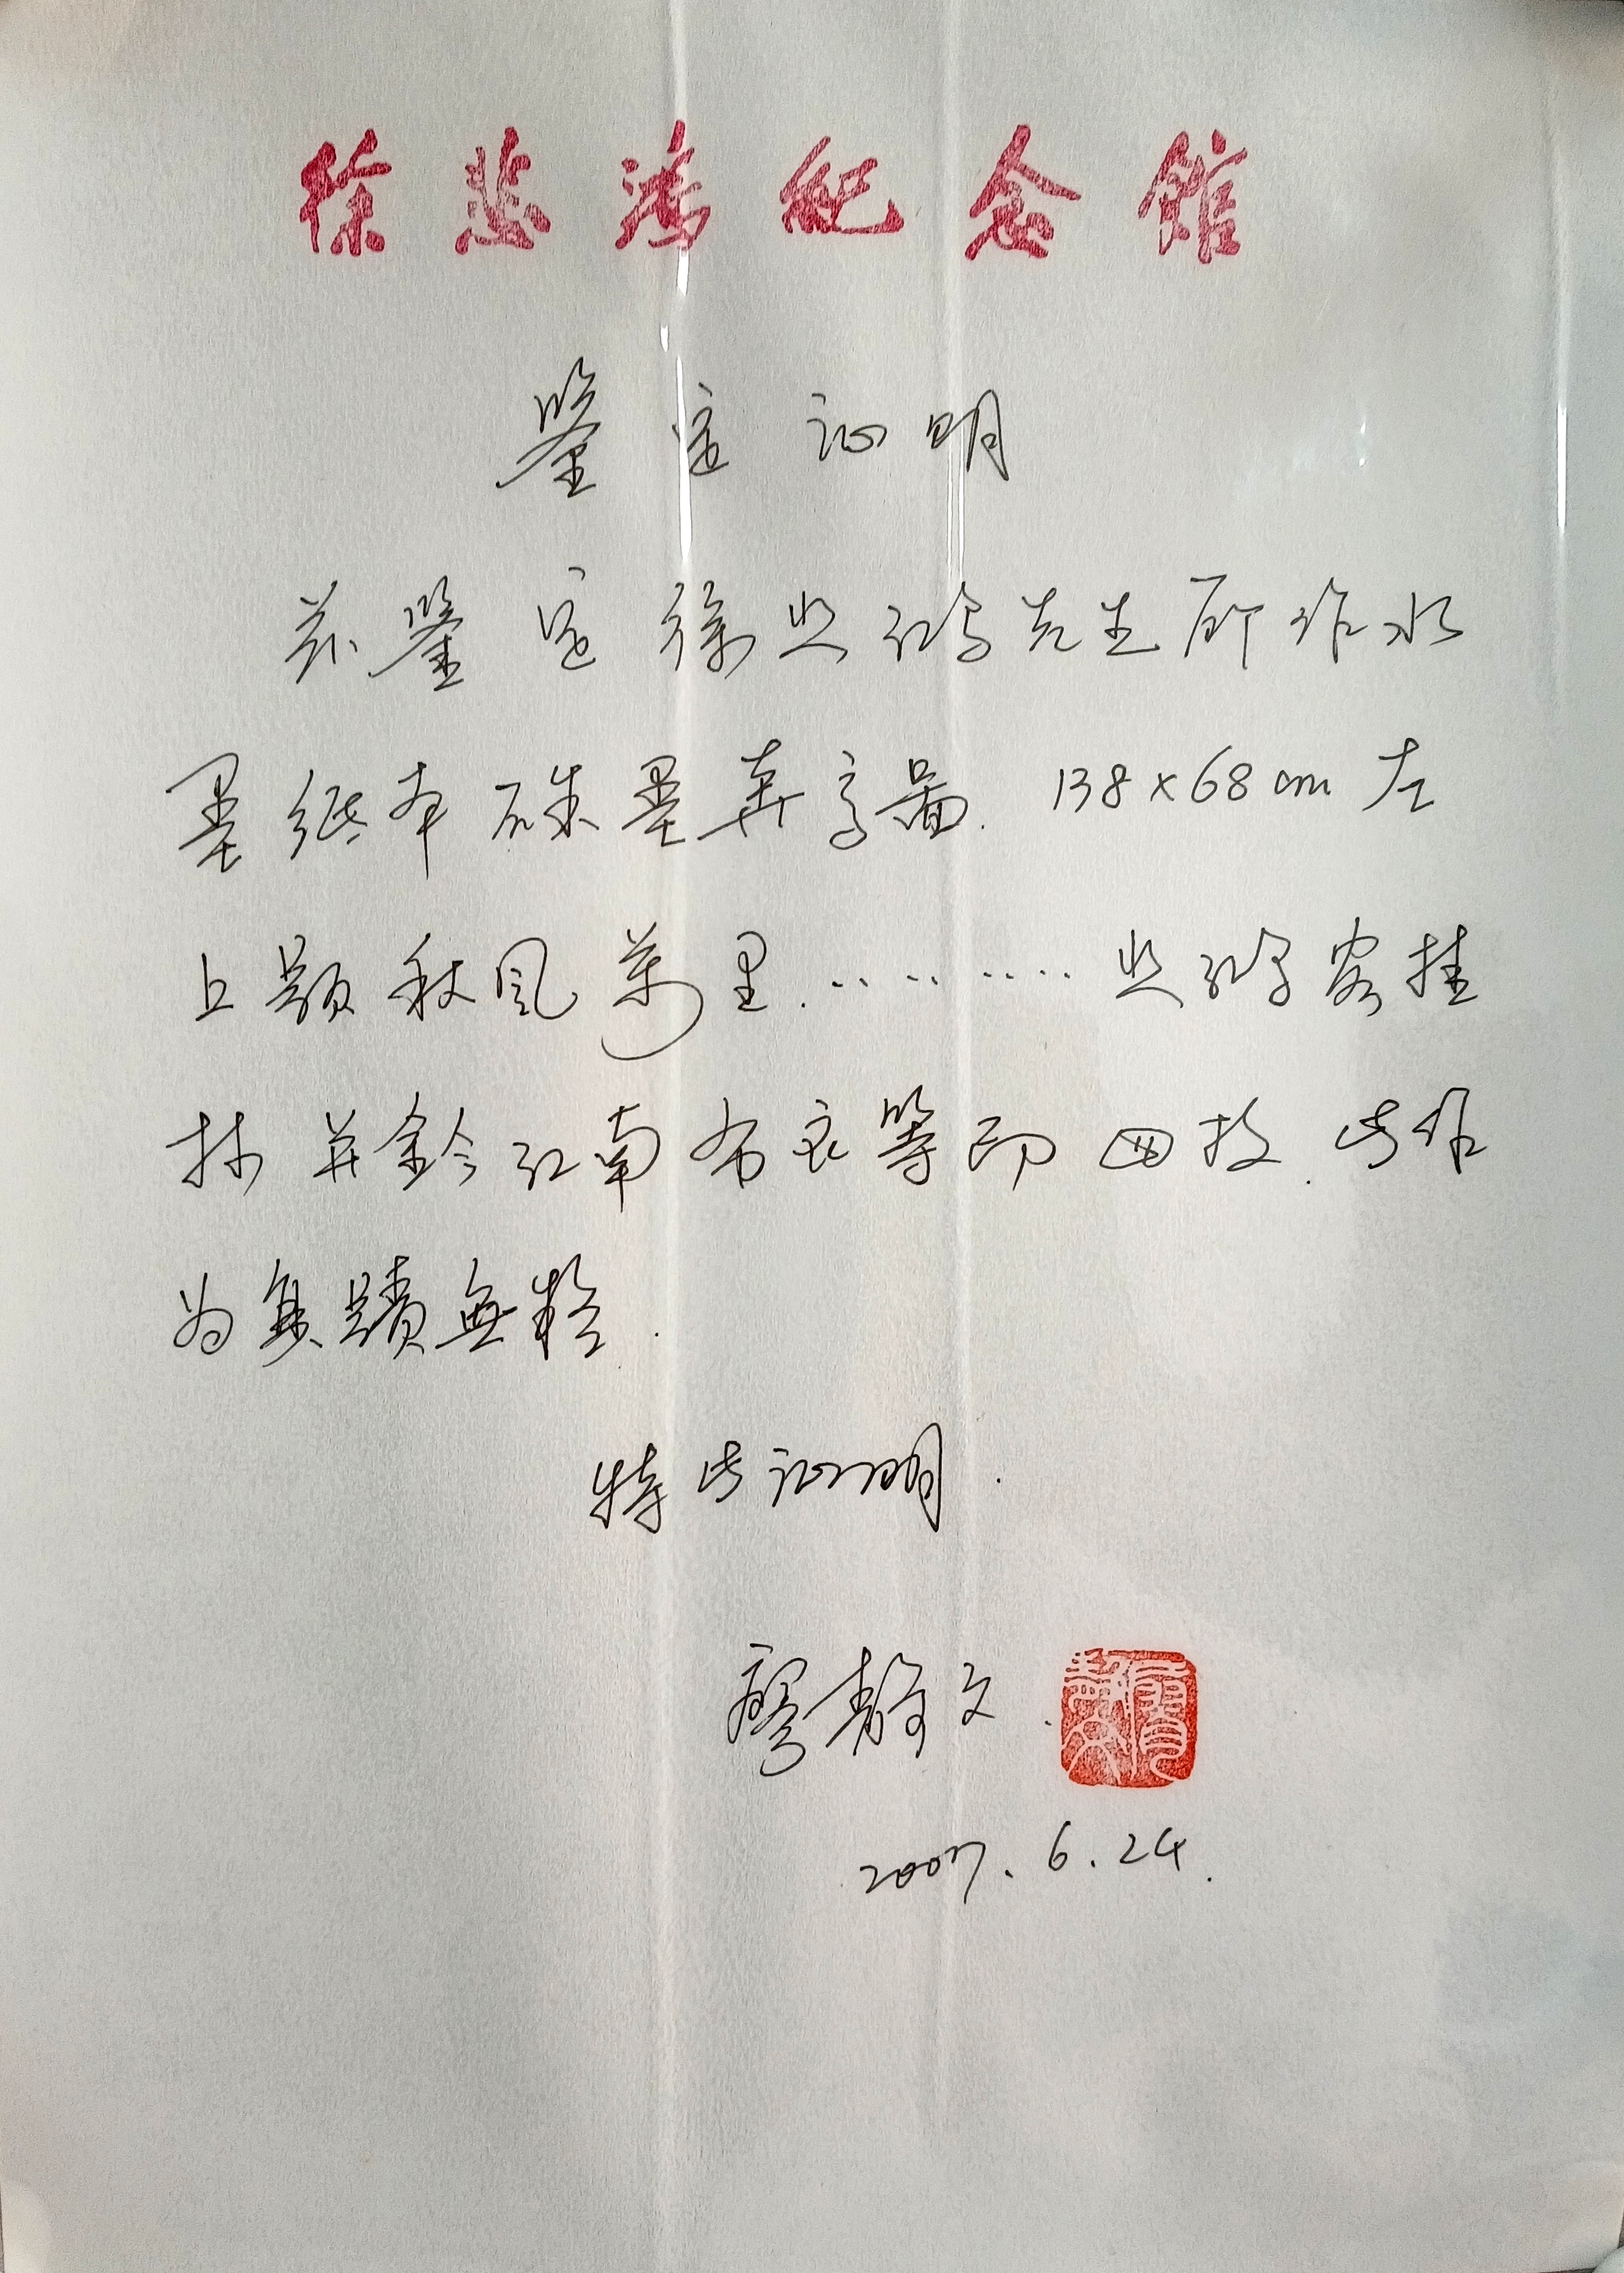 徐悲鸿纪念馆
鉴定证明
兹鉴定徐悲鸿先生所作水
墨纸本硃墨寿高图. 138×68cm 左
上题秋风万里.………… 悲鸿客桂
林并鈐江南布衣等印四枚.此作
为真蹟無
特此证明.
廖静文.
廖静文
2007.6.24.